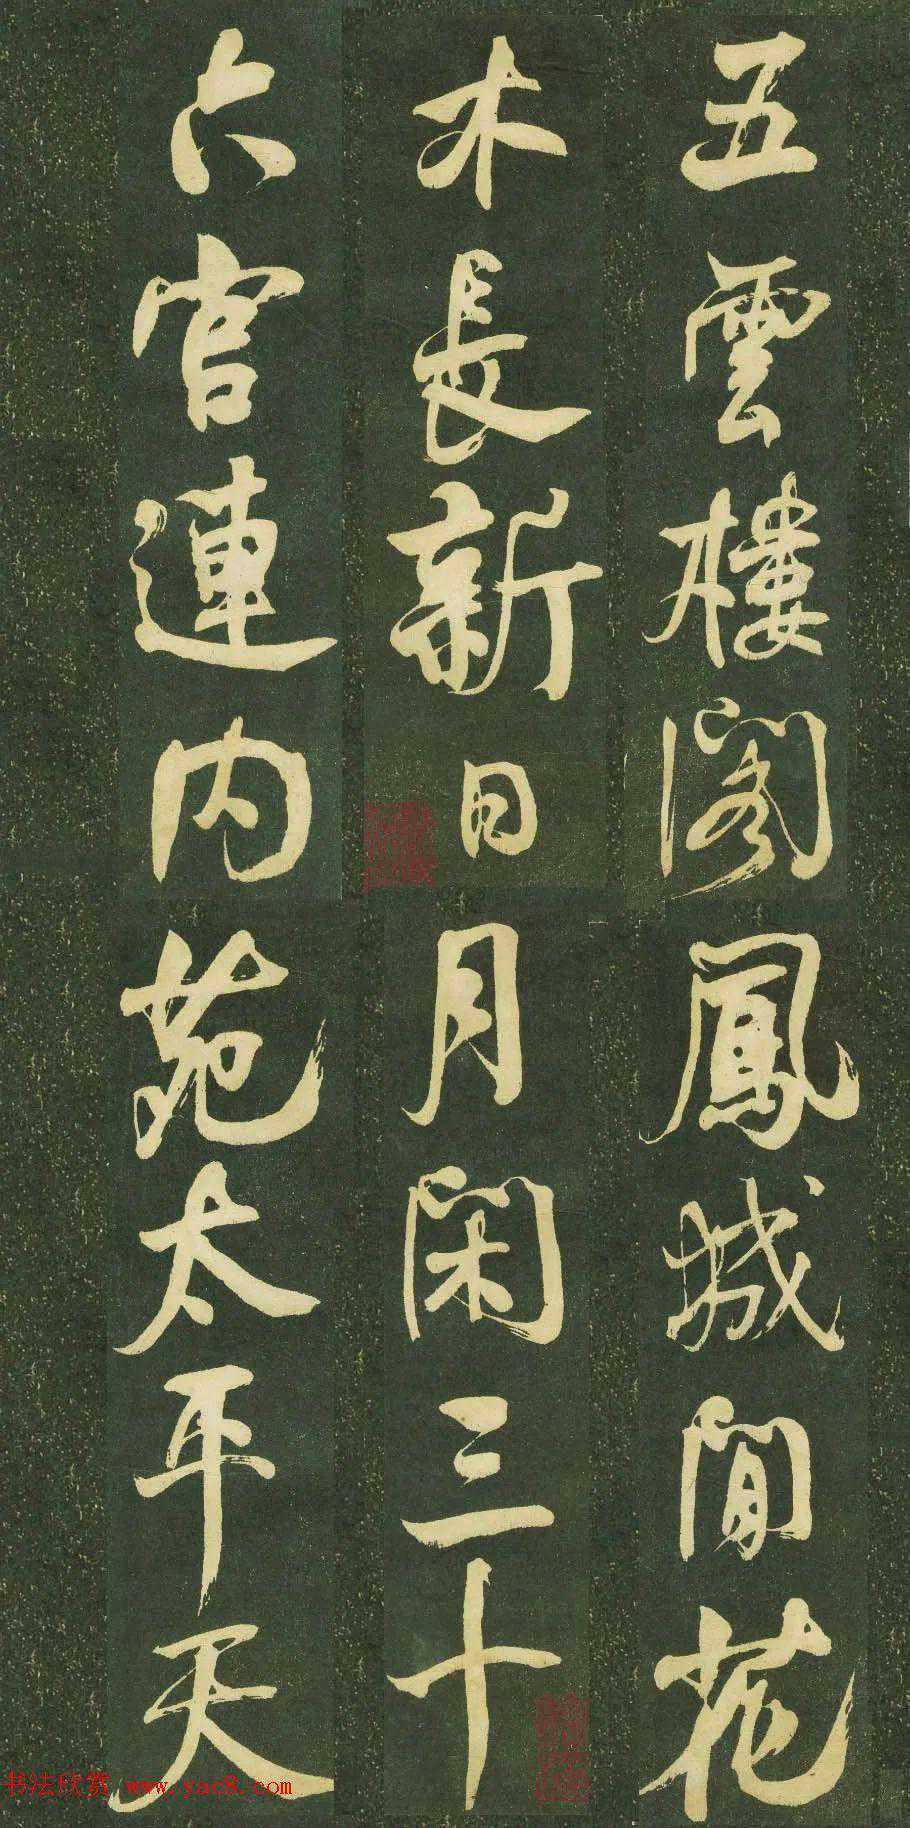 五雲樓閣鳳城間花
木長新日月閑三十
六宫連内苑太平天
书法欣赏 www.yac8.com